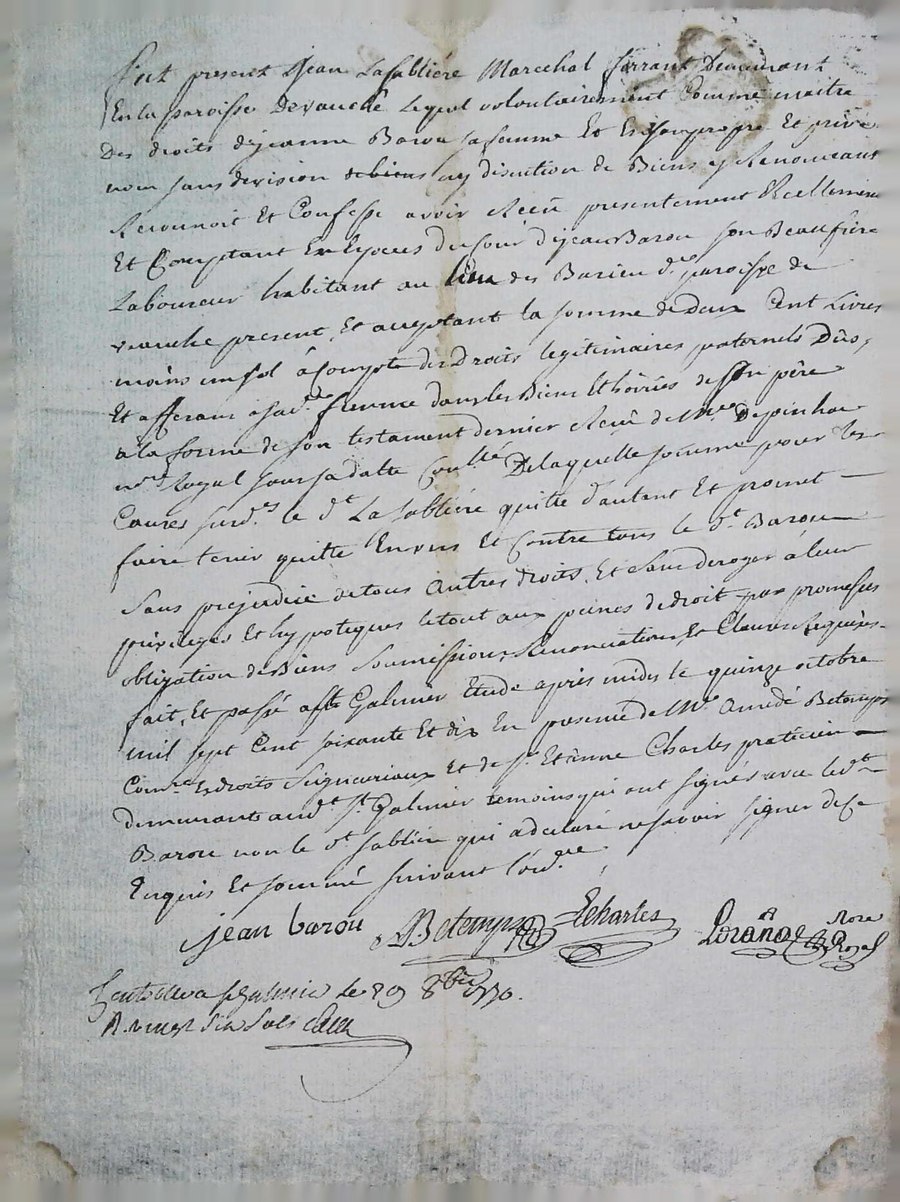 Fut present Jean Lasabliére Marechal ferrant Demeurant
En la paroisse deveauche Lequel volontairement Comme maitre
Des droits dejeanne Barou sa femme Et En son propre Et privé
nom sans devision debiens ny discution de Biens y Renonceant
Reconnoit Et Confesse avoir Receu presentement Reellement
Et Comptant En Especes du jour dejean Barou son Beaufrere
Laboureur habitant au lieu des Barieu d. paroisse de
veauche present, Et acceptant la somme de Deux Cent Livres
moins un sol à Compte des Droits legitimaires paternels Dûs,
Et afferant à sad. femme dans les Biens Et hoiries de son père
à la forme de son testament dernier Receu de Me Depinhac
nre Royal sous sa datte Delaquelle somme pour les
Causes surd. le dt La sabliére quitte d'autant Et promet
faire tenir quitte Envers Et Contre tous le dt Barou
Sans prejudice de tous autres droits, Et sans deroger à leur
privileges Et hypoteques le tout aux peines de droit par promesses
obligation de Biens Soumissions Renonciations Et Clauses Requises
fait, Et passé a St Galmier Etude après midy le quinze octobre
mil sept Cent soixante Et dix En presence de Me Amedé Betemps
Comre Endroits Seigneuriaux Et de sr Etienne Charles praticien
demeurants aud. St Galmier temoins qui ont signés avec le dt
Barou non le dt sabliere qui a declaré ne savoir signer de ce
Enquis Et sommé suivant l'ord.ce
jean barou Betemps Echarles Nore Royal
a St Galmier le 29 8bre 1770.
R. vingt Six Sols